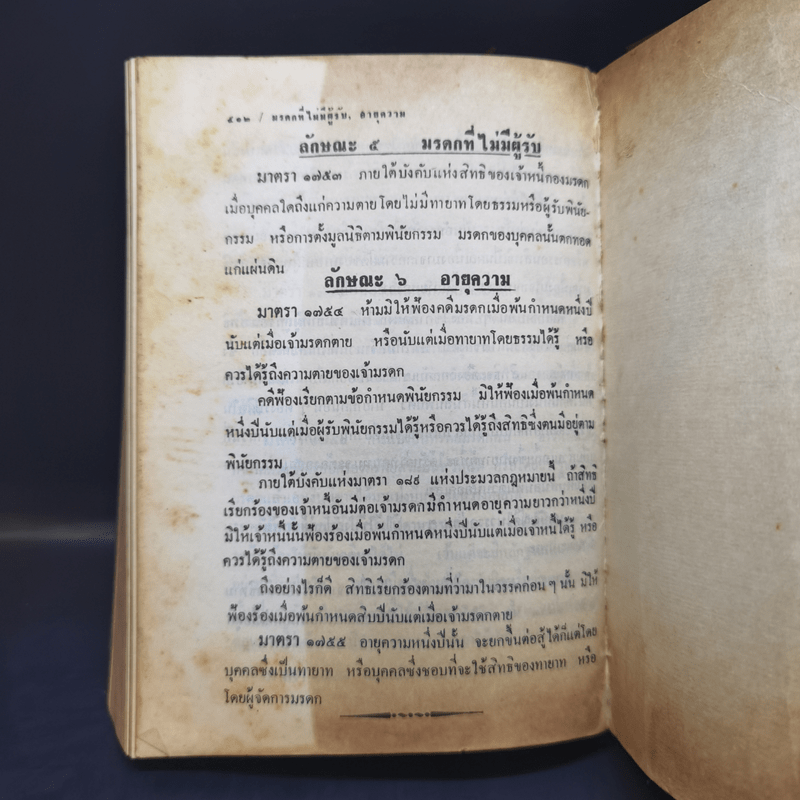 ๕๑๒ / มรดกที่ไม่มีผู้รับ, อายุความ
ลักษณะ ๕ มรดกที่ไม่มีผู้รับ
มาตรา ๑๗๕๓ ภายใต้บังคับแห่งสิทธิของเจ้าหนี้กองมรดก
เมื่อบุคคลใดถึงแก่ความตายโดยไม่มีทายาทโดยธรรมหรือผู้รับพินัย-
กรรม หรือการตั้งมูลนิธิตามพินัยกรรม มรดกของบุคคลนั้นตกทอด
แก่แผ่นดิน
ลักษณะ ๖ อายุความ
มาตรา ๑๗๕๔ ห้ามมิให้ฟ้องคดีมรดกเมื่อพ้นกำหนดหนึ่งปี
นับแต่เมื่อเจ้ามรดกตาย หรือนับแต่เมื่อทายาทโดยธรรมได้รู้ หรือ
ควรได้รู้ถึงความตายของเจ้ามรดก
คดีฟ้องเรียกตามข้อกำหนดพินัยกรรม มิให้ฟ้องเมื่อพ้นกำหนด
หนึ่งปีนับแต่เมื่อผู้รับพินัยกรรมได้รู้หรือควรได้รู้ถึงสิทธิซึ่งตนมีอยู่ตาม
พินัยกรรม
ภายใต้บังคับแห่งมาตรา ๑๘๙ แห่งประมวลกฎหมายนี้ ถ้าสิทธิ
เรียกร้องของเจ้าหนี้อันมีต่อเจ้ามรดกมีกำหนดอายุความยาวกว่าหนึ่งปี
มิให้เจ้าหนี้นั้นฟ้องร้องเมื่อพ้นกำหนดหนึ่งปีนับแต่เมื่อเจ้าหนี้ได้รู้ หรือ
ควรได้รู้ถึงความตายของเจ้ามรดก
ถึงอย่างไรก็ดี สิทธิเรียกร้องตามที่ว่ามาในวรรคก่อน ๆ นั้น มิให้
ฟ้องร้องเมื่อพ้นกำหนดสิบปีนับแต่เมื่อเจ้ามรดกตาย
มาตรา ๑๗๕๕ อายุความหนึ่งปีนั้น จะยกขึ้นต่อสู้ได้ก็แต่โดย
บุคคลซึ่งเป็นทายาท หรือบุคคลซึ่งชอบที่จะใช้สิทธิของทายาท หรือ
โดยผู้จัดการมรดก